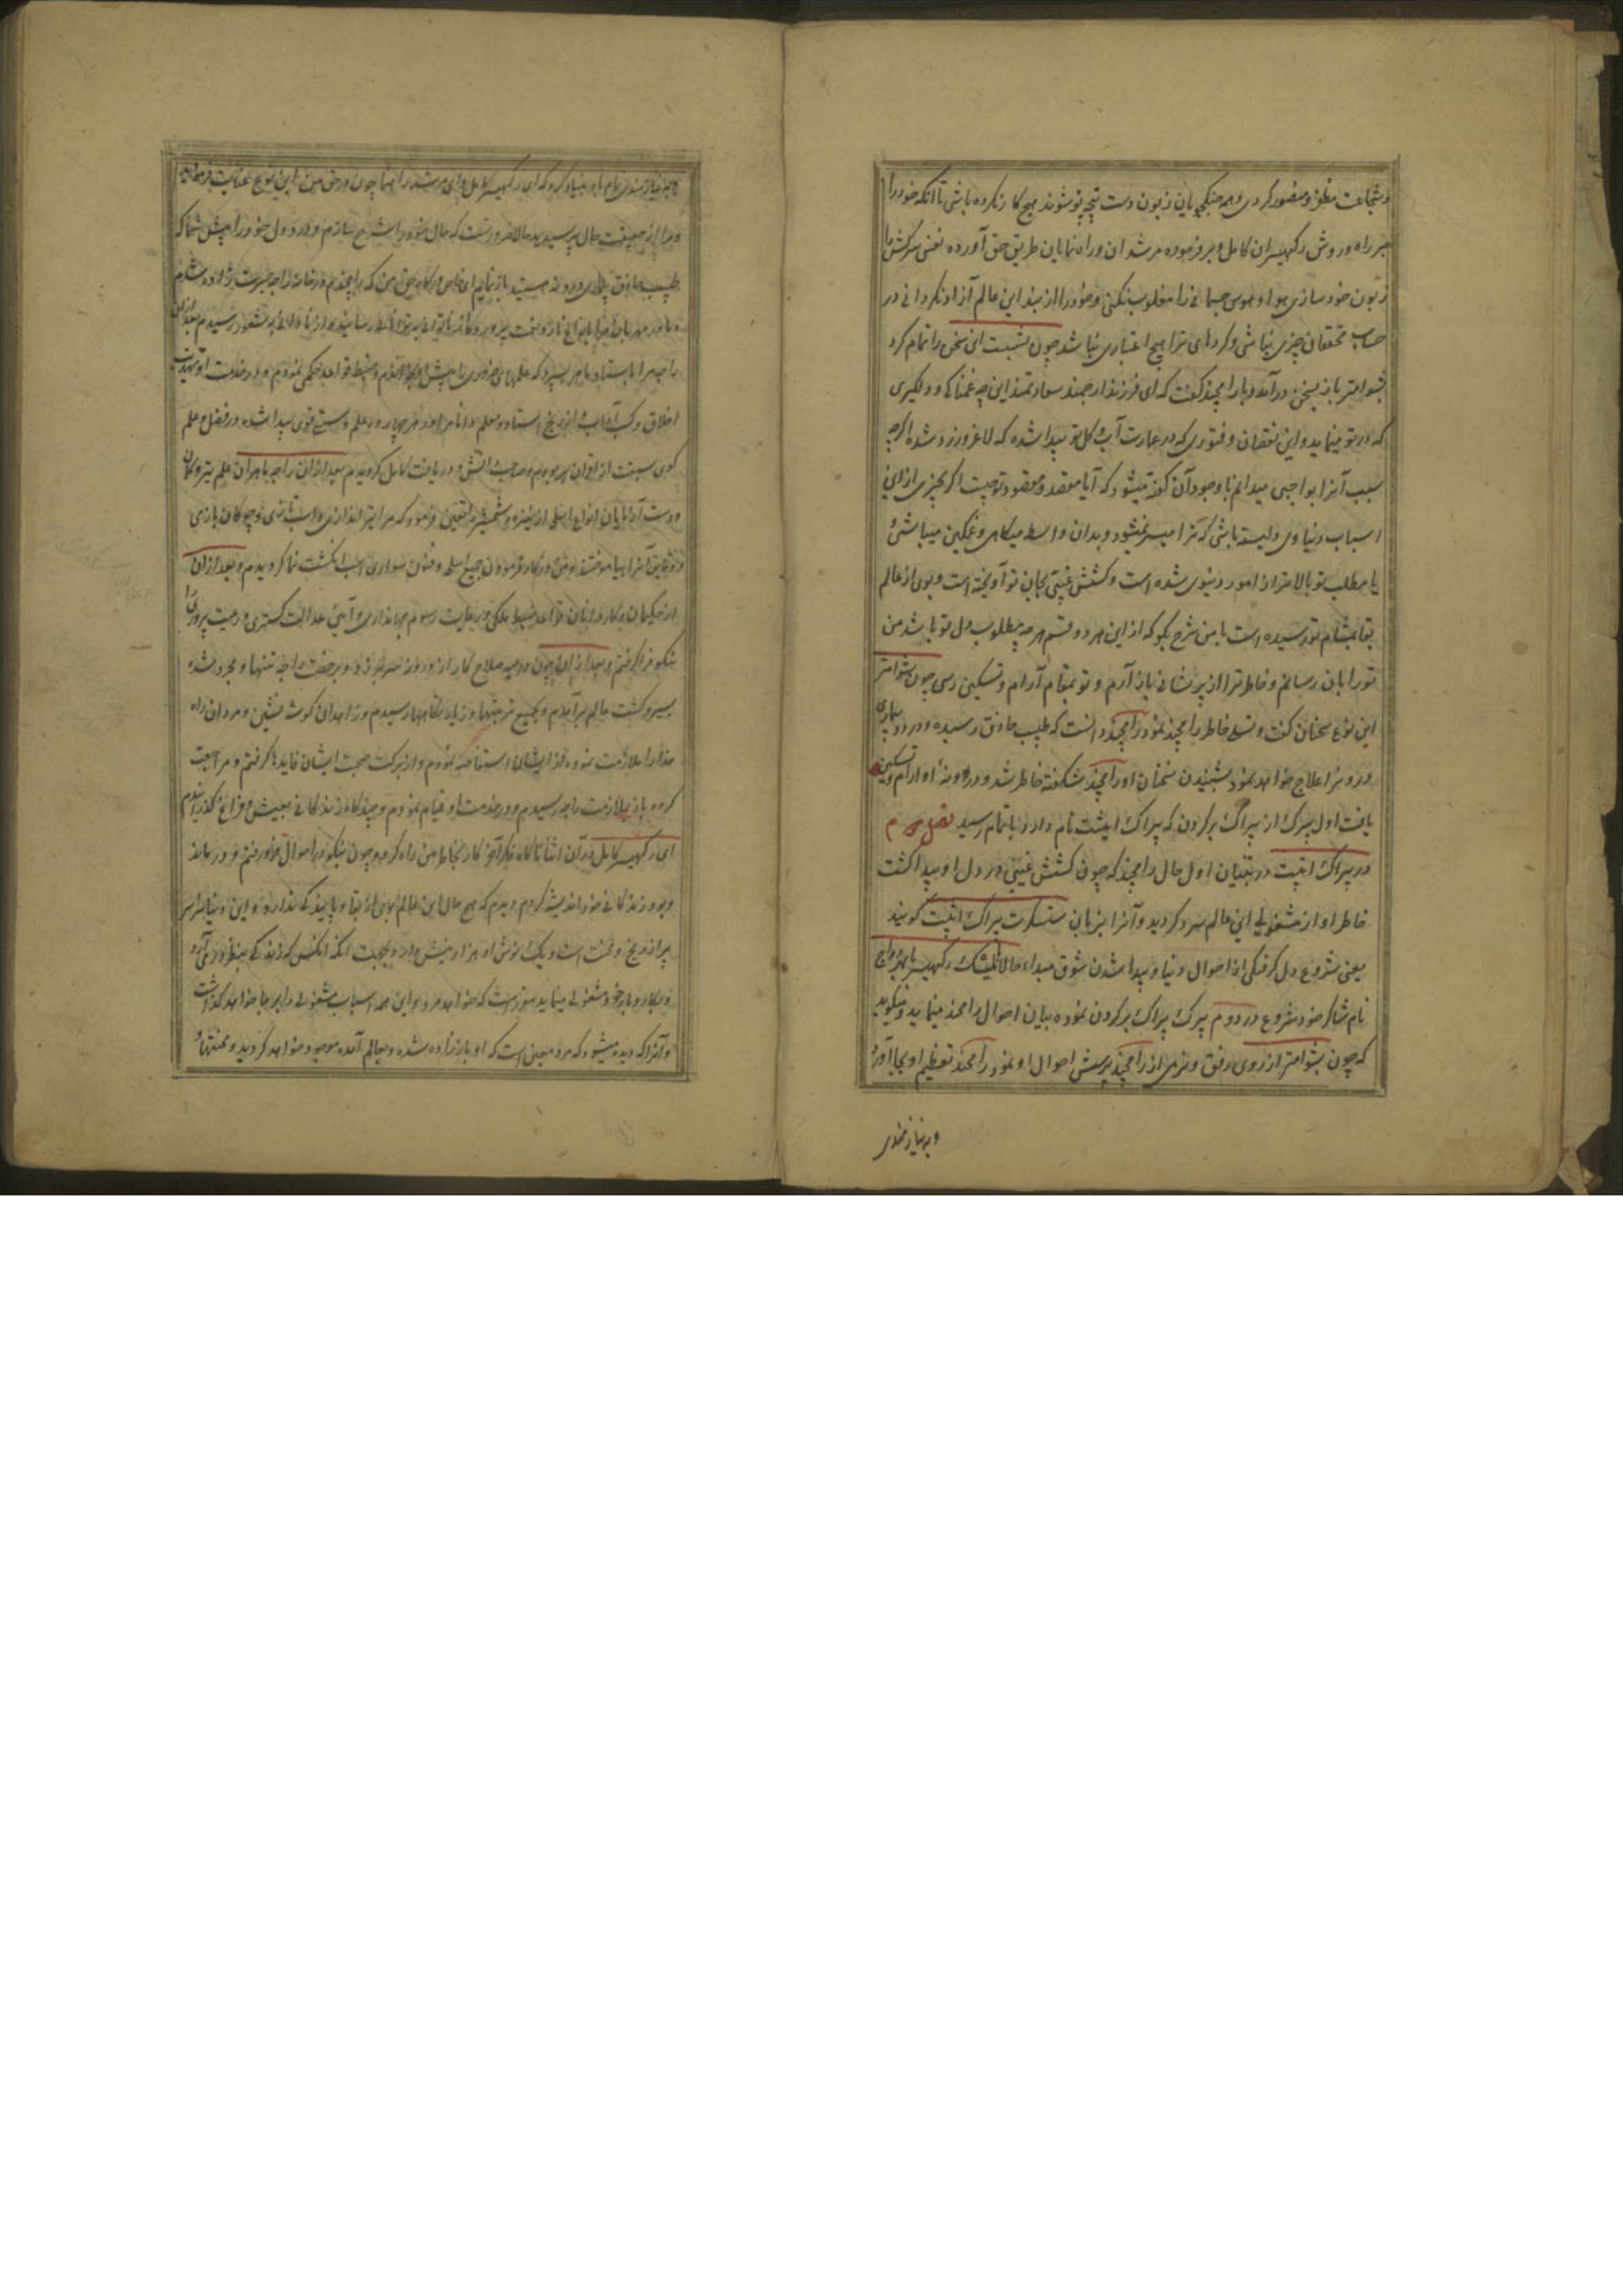 و شجاعت مظفر و منصور کردی و همه جنگجویان زبون دست پنجه تو شوند هیچ کار نکرده باشی تا آنکه خود را
بر راه و روش رکهیسران کامل و بر فرموده مرشدان و راه نمایان طریق حق آورده نفس سرکش را
زبون خود سازی هوا و هوس جسمانی را مغلوب نکنی و خود را از بند این عالم آزاد نکردانی در
حساب محققان چیزی نباشی و کردهای ترا هیچ اعتباری نباشد چون بشست این سخن را تمام کرد
بشوامتر باز بسخن درآمد و با رامچند گفت که ای فرزند ارجمند سعادتمند این چه غمناکی و دلگیری
که در تو مینماید و این نقصان و فتوری که در عمارت آب و گل تو پیدا شده که لاغر و زرد شده اگرچه
سبب آنرا بواجبی میدانم با وجود آن گفته میشود که آیا مقصد و مقصود تو چیست اگر بچیزی از این
اسباب دنیاوی دلبسته باشی که ترا میسر نمیشود و بدان واسطه میکاهی و غمگین میباشی
یا مطلب تو بالاتر از امور دنیوی شده است و کشش غیبی بجان تو آویخته است و بوی از عالم
بقا بمشام تو رسیده است با من شرح بگو که از این هر دو قسم هرچه مطلوب دل تو باشد من
تو را بآن رسانم و خاطر ترا از پریشانی باز آرم و تو بمقام آرام و تسکین رسی چون بشوامتر
این نوع سخنان گفت و تسلی خاطر رامچند نمود رامچند دانست که طبیب حاذق رسیده و درد و بیماری
درونرا علاج خواهد نمود بشنیدن سخنان او رامچند شکفته خاطر شد و درونهٔ او آرام و تسکین
یافت اول پیرک از پیراک برکرون که پیراک اپشت نام دارد باتمام رسید
در پیراک اپتت در بیان اول حال رامچند که چون کشش غیبی در دل او پیدا گشت
خاطر او از مشغولی این عالم سرد گردید و آنرا بزبان سنسکرت پیراک اپتت گویند
یعنی شروع دل گرفتگی از احوال دنیا و پیدا شدن شوق مبداء حالا بالمیک رکهیسر با بهردواج
نام شاگرد خود شروع در دوم پیرک پیراک برکرون نموده بیان احوال رامچند مینماید و میگوید
که چون بشوامتر از روی رفق و نرمی از رامچند پرسش احوال او نمود رامچند تعظیم او بجا آورده
و به نیازمندی
و به نیازمندی تمام بنیاد کرد که ای رکهیسر کامل و ای مرشد راهنما چون در حق من این نوع عنایت فرمودید
و مرا از حقیقت حال پرسیدید حالا ضرورتست که حال خود را شرح سازم و درد دل خود را پیش شما که
طبیب حاذق بیماری درونه هستید باز نمایم
راجه مرا باستاد ماهر سپرد که علمهای ضروری را پیش او بخوانم و ضبط قواعد حکمی نمودم و در خدمت او تهذیب
اخلاق و کسب آداب از برکت استاد و معلم دانا مرا در هر چهار در علم دستی قوی پیدا شده در فضل و علم
گوی سبقت از اقران بربودم و صاحب دانش و دریافت کامل گردیدم بعد از آن راجه ماهران علم تیر و کمان
و دست آزمایان انواع اسلحه از نیزه و شمشیر را تعین فرمود که مرا تیراندازی و اسب تازی و چوگان بازی
و دقایق آنرا بیاموختند و من در کار فرمودن جمیع اسلحه و فنون سواری اسب انگشت نما گردیدم و بعد از آن
از حکیمان و کاردانان قواعد ضبط ملکی و رعایت رسوم جهانداری و آئین عدالت گستری و رعیت پروری را
نیکو فرا گرفتم و بعد از آن چون
بسیر و گشت عالم برآمدم و بجمیع تیرتها و زیارتگاهها رسیدم و زاهدان گوشه نشین و مردان راه
خدا را ملازمت نموده از ایشان استفاضه نمودم و از برکت صحبت ایشان فایدها گرفتم و مراجعت
کرده باز بملازمت راجه رسیدم و در خدمت او قیام نمودم و چندگاه زندگانی بعیش و فراغ گذراندم
ای رکهیسر کامل در آن اثنا ناگاه فکر آخر کار بخاطر من راه کرد و چون نیکو در احوال خود رفتم و در ماند
و بود زندگانی خود اندیشه کردم دیدم که هیچ حال این عالم بوی از بقا و پایندگی ندارد و این دنیا سراسر
پر از رنج و محنت است و یک نوش او هزار نیش دارد و عجبست
و بکار و بار خود مشغولی مینماید مقرر است که خواهد مرد و این همه اسباب مشغولی را برجا خواهد گذاشت
و آنرا که دیده میشود که مرد معین است که او باز زاده شده و بعالم آمده موجود خواهد گردید و محنتهای